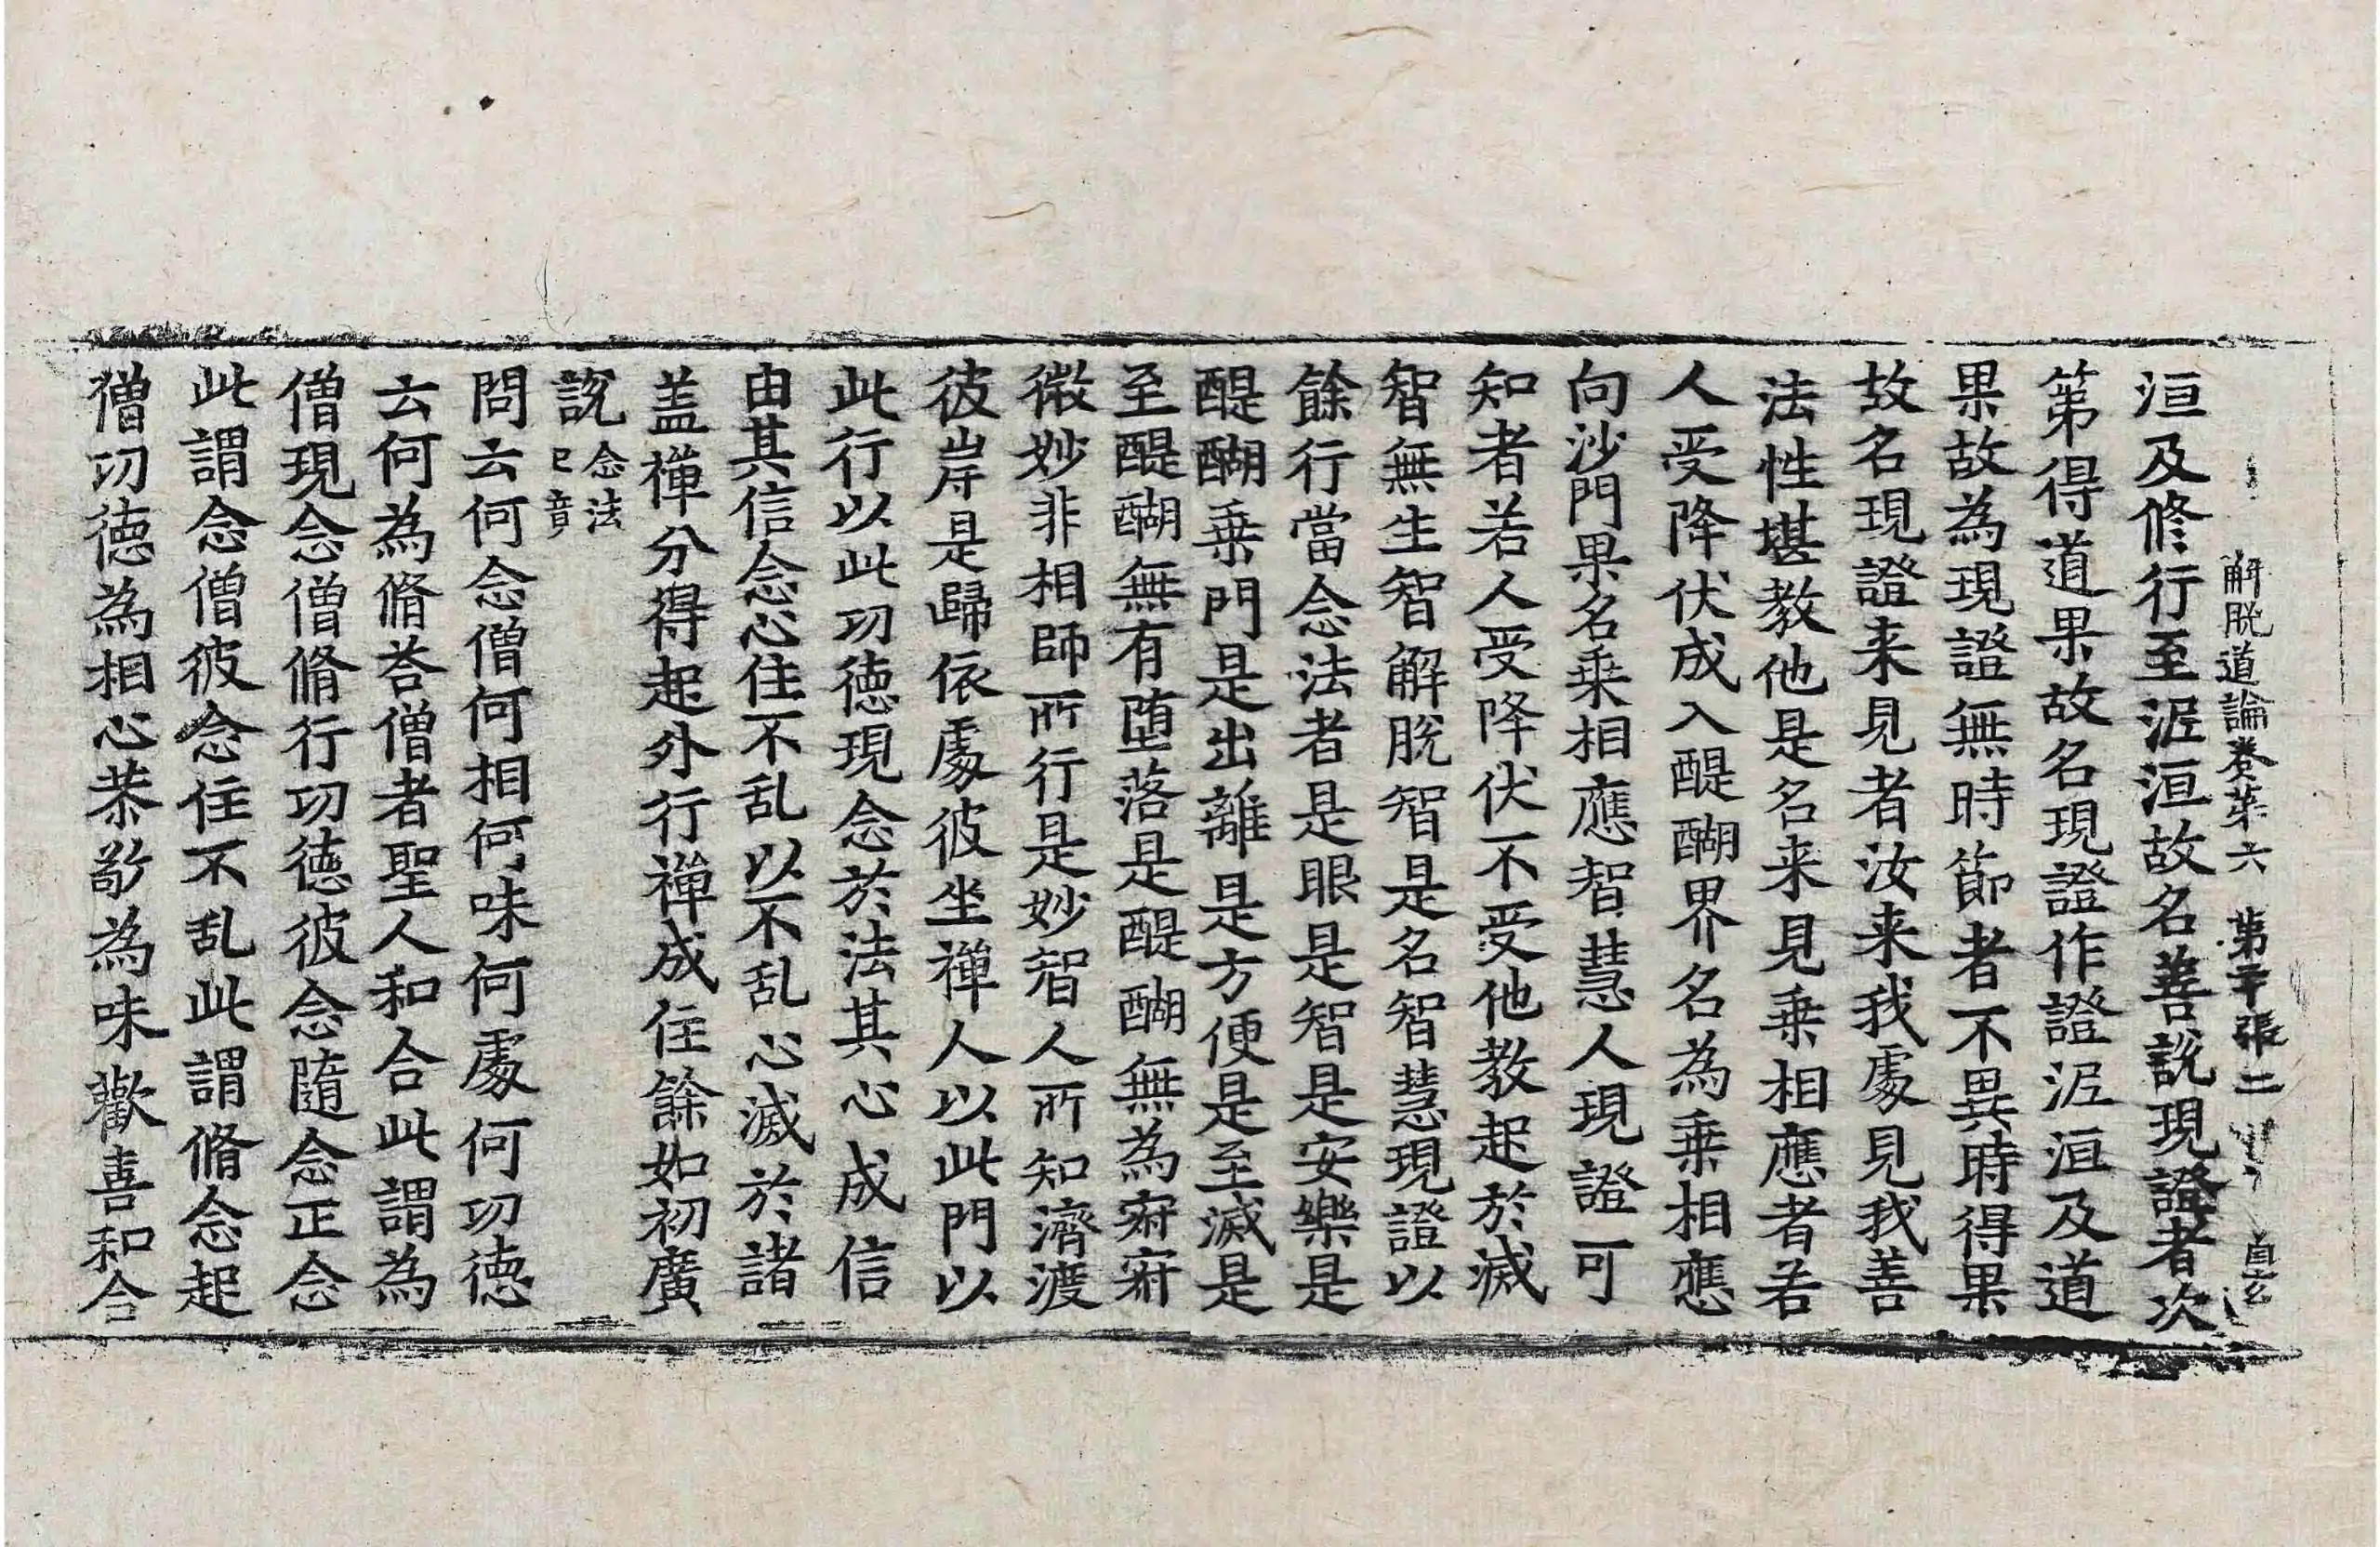 解脱道論卷第六　第二十張
洹及修行至泥洹故名善說現證者次
第得道果故名現證作證泥洹及道
果故為現證無時節者不異時得果
故名現證来見者汝来我處見我善
法性堪教他是名来見乗相應者若
人受降伏成入醍醐界名為乗相應
向沙門果名乗相應智慧人現證可
知者若人受降伏不受他教起於滅
智無生智解脱智是名智慧現證以
餘行當念法者是眼是智是安樂是
醍醐乗門是出離是方便是至滅是
至醍醐無有堕落是醍醐無為寂寂
微妙非相師所行是妙智人所知濟渡
彼岸是歸依處彼坐禪人以此門以
此行以此功徳現念於法其心成信
由其信念心住不乱以不乱心滅於諸
盖禪分得起外行禪成住餘如初廣
說念法已竟
問云何念僧何相何味何處何功徳
云何為脩荅僧者聖人和合此謂為
僧現念僧脩行功徳彼念隨念正念
此謂念僧彼念住不乱此謂脩念起
僧功徳為相心恭敬為味歡喜和合